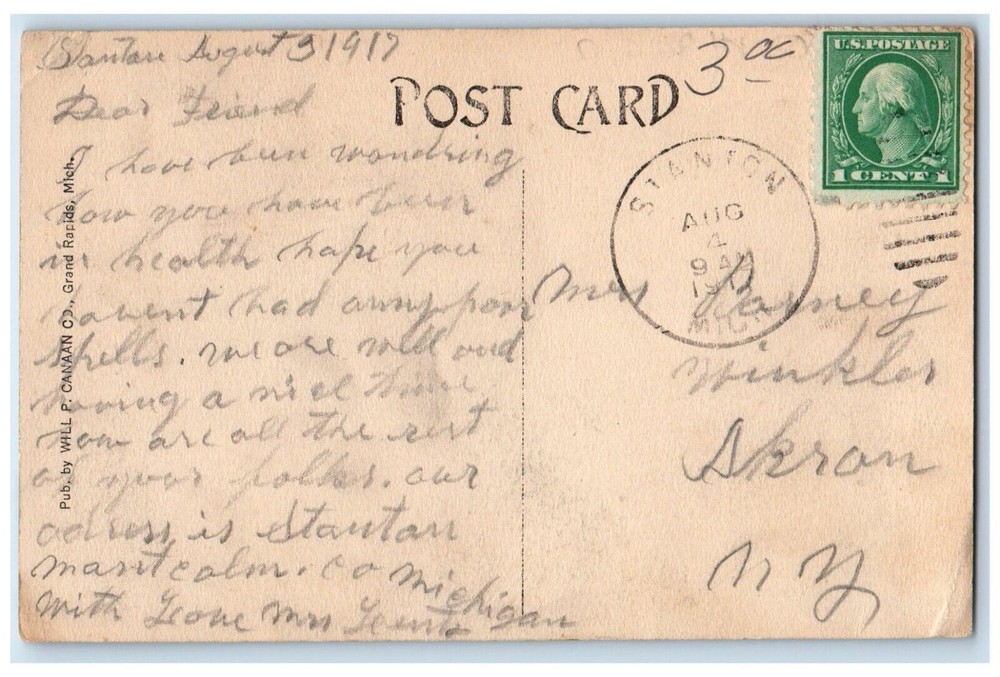 Stantan August 3 1917
3 00
U.S. POSTAGE
1 CENT 1
POST CARD
STANTON
AUG
4
9 AM
1917
MICH
Dear Friend
I have been wondring
how you have been
in health hope you
havent had anny poor
spells. we are well and
having a nice time
how are all the rest
of your folks. our
adress is Stantan
mantcalm. co michigan
With Love Mrs
Mrs Barney
Winkler
Akron
N Y
Pub. by WILL P. CANAAN CO., Grand Rapids, Mich.